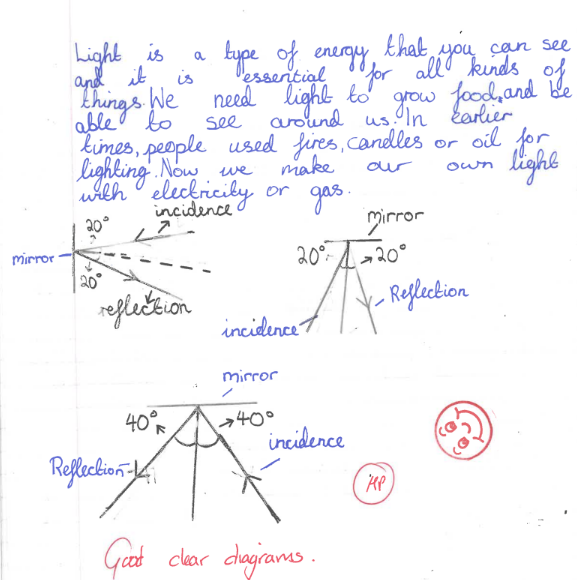 Light is a type of energy that you can see
and it is essential for all kinds of
things. We need light to grow food, and be
able to see around us. In earlier
times, people used fires, candles or oil for
lighting. Now we make our own light
with electricity or gas.
incidence
20°
mirror
20°
reflection
mirror
20° 20°
Reflection
incidence
mirror
40° 40°
incidence
Reflection
Good clear diagrams.